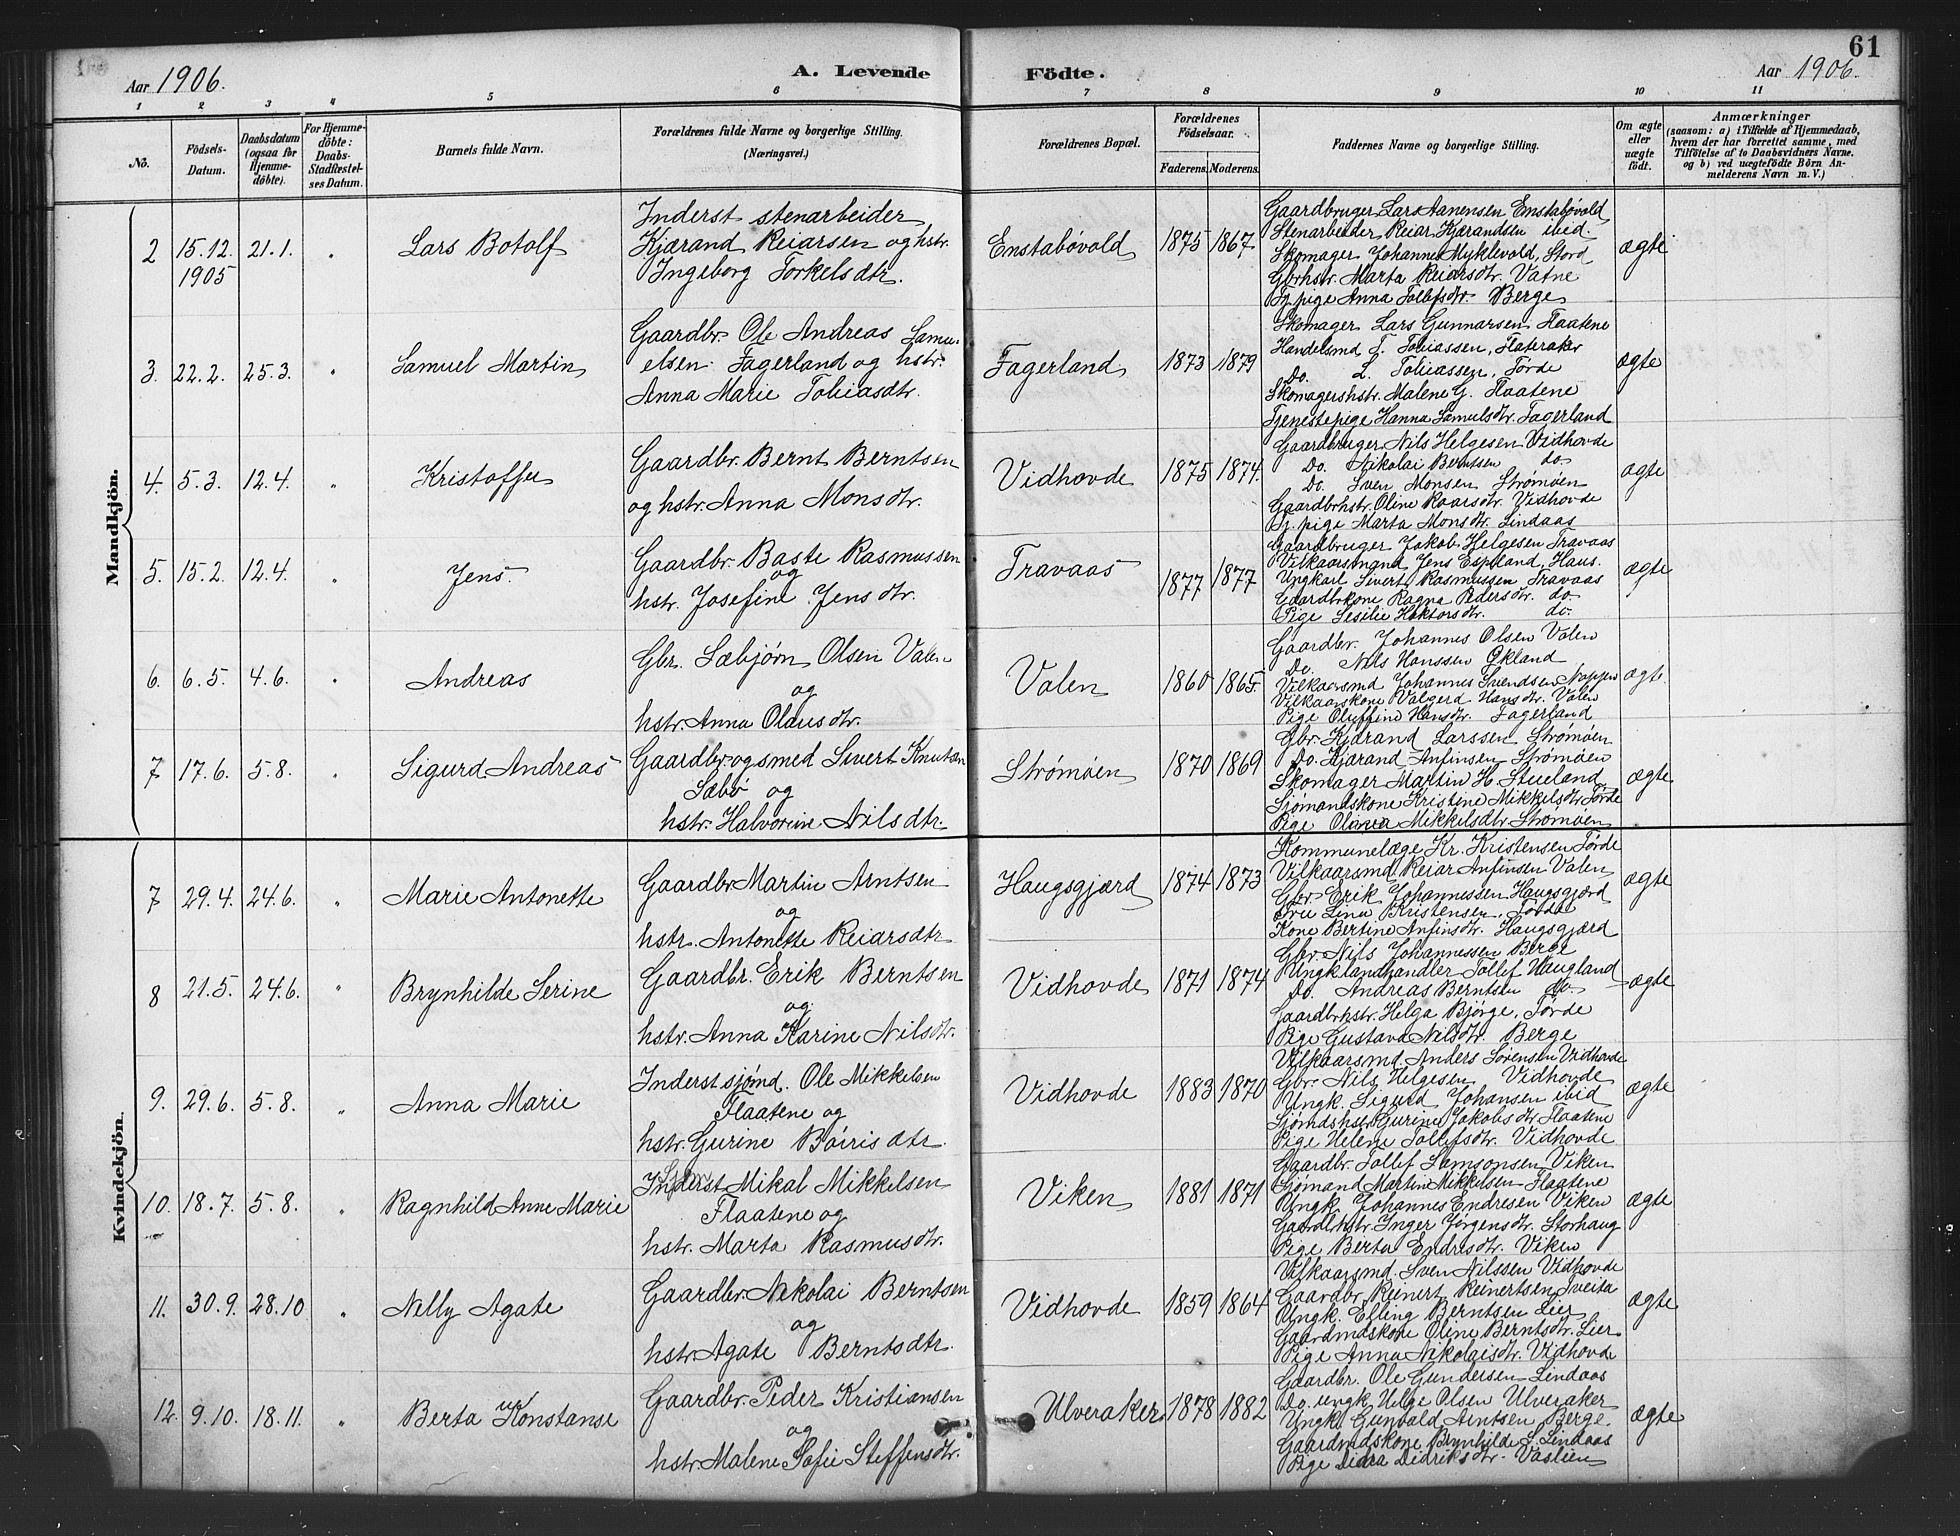 61
Aar 1906.
A. Levende Födte.
Aar 1906.
1 2 3 4 5 6 7 8 9 10 11
No.
Födsels-Datum.
Daabsdatum (ogsaa for Hjemme-döbte).
For Hjemme-döbte: Daabs-Stadfæstel-ses Datum.
Barnets fulde Navn.
Forældrenes fulde Navne og borgerlige Stilling.
(Næringsvei.)
Forældrenes Bopæl.
Forældrenes Födselsaar.
Faderens. Moderens.
Faddernes Navne og borgerlige Stilling.
Om ægte eller uægte födt.
Anmærkninger
(saasom: a) i Tilfælde af Hjemmedaab,
hvem der har forrettet samme, med
Tilföielse af to Daabsvidners Navne,
og b) ved uægtefödte Börn An-
melderens Navn m. V.)
Mandkjön.
2 15.12. 1905 21.1. " Lars Botolf
Inderst stenarbeider
Kjærand Reiarsen og hstr.
Ingeborg Torkelsdtr.
Enstabövold 1875 1867
Gaardbruger Lars Aanensen Enstabövold
Stenarbeider Reiar Kjærandsen ibid.
Skomager Johannes Myklevold, Stord
Gbrhstr. Marta Reiarsdtr. Vatne
Tj.pige Anna Tollefsdtr. Berge
ægte
3. 22.2. 25.3. " Samuel Martin
Gaardbr. Ole Andreas Samu-
elsen Fagerland og hstr.
Anna Marie Tobiasdtr.
Fagerland 1873 1879
Skomager Lars Gunnarsen Flaatene
Handelsmd T. Tobiassen, Flateraker
Do. L. Tobiassen, Förde
Skomagershstr. Malene G. Flaatene
Tjenestepige Hanna Samuelsdtr. Fagerland
ægte
4. 5.3. 12.4. " Kristoffer
Gaardbr. Bernt Berntsen
og hstr. Anna Monsdtr.
Vidhovde 1875 1874.
Gaardbruger Nils Helgesen Vidhovde
Do. Nikolai Berntsen do.
Do. Sven Monsen Strömöen
Gaardbrhstr. Oline Roarsdtr. Vidhovde
Tj. pige Marta Monsdtr. Lindaas
ægte
5. 15.2. 12.4. " Jens.
Gaardbr. Baste Rasmussen
og
hstr. Josefine Jensdtr.
Travaas 1877 1877
Gaardbruger Jakob Helgesen Travaas
Vilkaarsmand Jens Espeland, Haus.
Ungkarl Sivert Rasmussen Travaas
Gaardbrkone Ragna Pedersdtr. do
Pige Sesilie Hektorsdtr. do.
ægte
6. 6.5. 4.6. " Andreas
Gbr. Sæbjörn Olsen Valen
og
hstr. Anna Olausdtr.
Valen 1860 1865.
Gaardbr. Johannes Olsen Valen
Do. Nils Hanssen Økland
Vilkaarsmd Johannes Svendsen Nappen
Vilkaarskone Valgerd Hansdtr. Valen
Pige Oluffine Hansdtr. Fagerland
ægte.
7 17.6. 5.8. " Sigurd Andreas
Gaardbr. og smed Sivert Knutsen
Sæbö og
hstr. Halvorine Nilsdtr.
Strömöen 1870 1869
Gbr. Kjærand Larssen Strömöen
Do. Kjærand Anfinsen Strömöen
Skomager Martin H. Stueland
Sjömandskone Kristine Mikkelsdtr. Förde
Pige Olava Mikkelsdtr. Strömöen
ægte
Kvindekjön.
7 29.4. 24.6. " Marie Antonette
Gaardbr. Martin Arntsen
og
hstr. Antonette Reiarsdtr
Haugsgjærd 1874 1873
Kommunelæge Kr. Kristensen Förde
Vilkaarsmd. Reiar Anfinsen Valen
Gbr. Erik Johannessen Haugsgjærd
Frue Lina Kristensen, Förde
Kone Bertine Anfinsdtr. Haugsgjærd
ægte
8 21.5. 24.6. " Brynhilde Serine
Gaardbr. Erik Berntsen
og
hstr. Anna Karine Nilsdtr.
Vidhovde 1871 1874
Gbr. Nils Johannessen Berge
Ungk. landhandler Tollef Haugland
Do. Andreas Berntsen do.
Gaardbrhstr. Helga Björge, Förde
Pige Gustava Nilsdtr. Berge
ægte
9. 29.6. 5.8. " Anna Marie
Inderst sjömd. Ole Mikkelsen
Flaatene og
hstr. Gurine Böirisdtr.
Vidhovde 1883 1870
Vilkaarsmd. Anders Sörensen Vidhovde
Gbr. Nils Helgesen Vidhovde
Ungk. Sigurd Johansen ibid
Sjömdshstr Gurine Jakobsdtr. Flaatene
Pige Helene Tollefsdtr. Vidhovde
ægte
10. 18.7. 5.8. " Ragnhild Anne Marie
Inderst Mikal Mikkelsen
Flaatene og
hstr. Marta Rasmusdtr.
Viken 1881 1871
Gaardbr. Tollef Samsonsen Viken
Sjömand Martin Mikkelsen Flaatene
Ungk. Johannes Endresen Viken
Gaardbrhstr. Inger Jörgensdtr. Storhaug
Pige Berta Endresdtr. Viken
ægte
11. 30.9. 28.10 " Nelly Agate
Gaardbr. Nikolai Berntsen
og
hstr. Agate Berntsdtr.
Vidhovde 1859 1864
Vilkaarsmd. Sven Nilssen Vidhovde
Gaardbr. Reinert Reinertsen Tveita
Ungk. Elling Berntsen Lier
Gaardmdskone Oline Berntsdtr. Lier
Pige Anna Nikolaisdtr. Vidhovde
ægte
12 9.10. 18.11. " Berta Konstanse
Gaardbr. Peder Kristiansen
og
hstr. Malene Sofie Steffensdtr.
Ulveraker 1878 1882
Gaardbr. Ole Gundersen Lindaas
Do. ungk. Helge Olsen Ulveraker
Ungk. Gunvald Arntsen Berge.
Gaardmdskone Brynhilde S. Lindaas
Pige Didra Didriksdtr. Vaslien
ægte